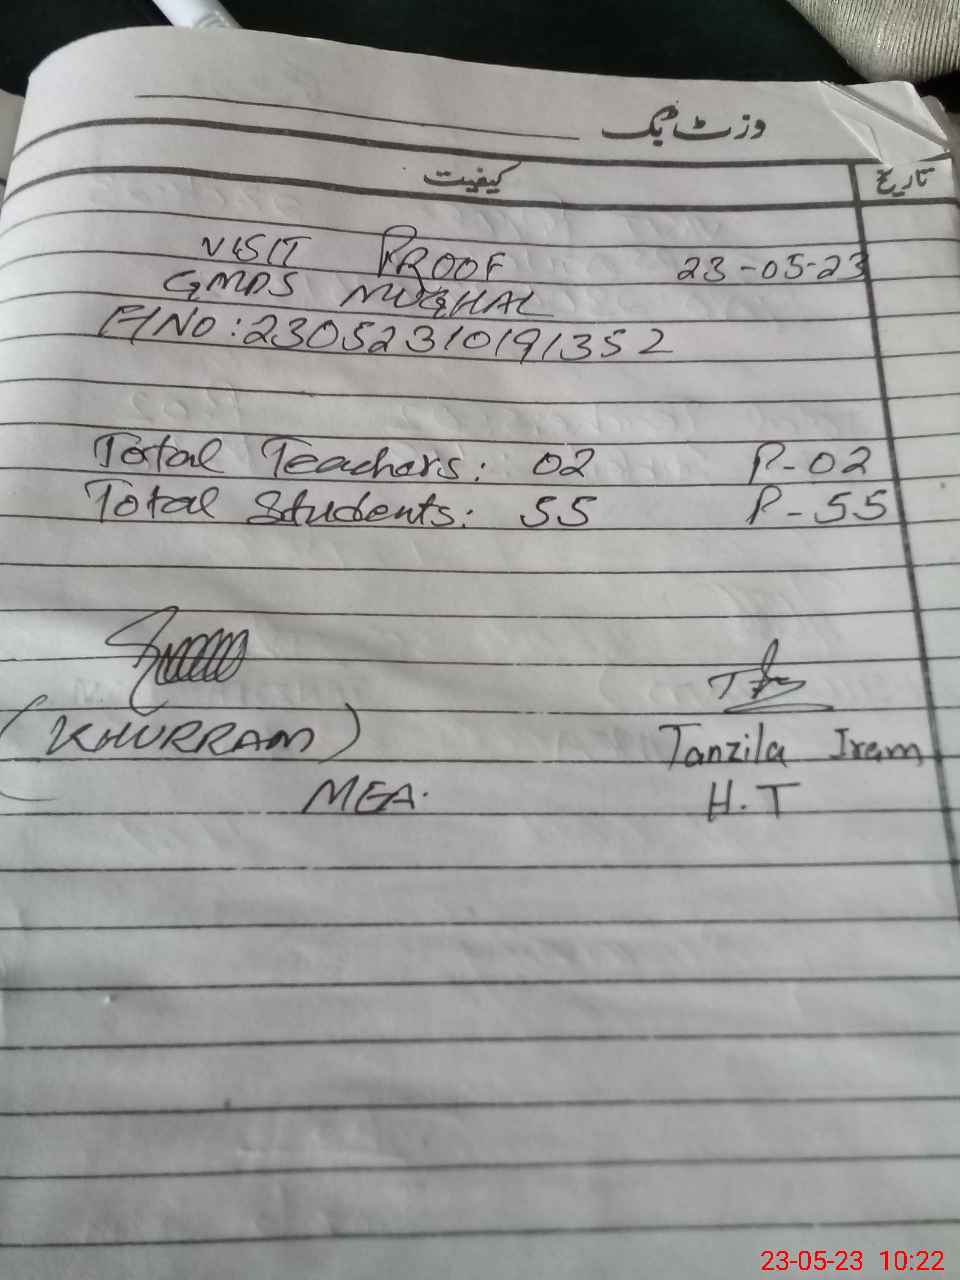 وزٹ بک
کیفیت تاریخ
VISIT PROOF 23-05-23
GMPS MUGHAL
F/NO: 23052310191352
Total Teachers: 02 P-02
Total Students: 55 P-55
(KHURRAM) Tanzila Iram
MEA. H.T
23-05-23 10:22